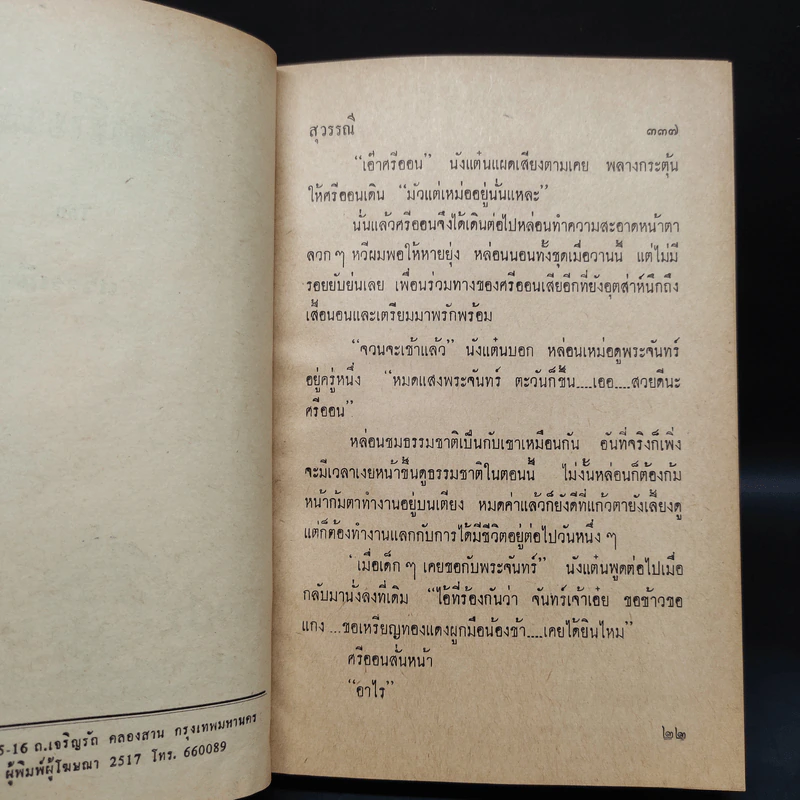 สุวรรณี ๓๓๗
"เอ๊าศรีออน" นังแต๋นแผดเสียงตามเคย พลางกระตุ้น
ให้ศรีออนเดิน "มัวแต่เหม่ออยู่นั้นแหละ"
นั่นแล้วศรีออนจึงได้เดินต่อไปหล่อนทำความสะอาดหน้าตา
ลวก ๆ หวีผมพอให้หายยุ่ง หล่อนนอนทั้งชุดเมื่อวานนี้ แต่ไม่มี
รอยยับย่นเลย เพื่อนร่วมทางของศรีออนเสียอีกที่ยังอุตส่าห์นึกถึง
เสื้อนอนและเตรียมมาพรักพร้อม
"จวนจะเช้าแล้ว" นังแต๋นบอก หล่อนเหม่อดูพระจันทร์
อยู่ครู่หนึ่ง "หมดแสงพระจันทร์ ตะวันก็ขึ้น....เออ....สวยดีนะ
ศรีออน"
หล่อนชมธรรมชาติเป็นกับเขาเหมือนกัน อันที่จริงก็เพิ่ง
จะมีเวลาเงยหน้าขึ้นดูธรรมชาติในตอนนี้ ไม่งั้นหล่อนก็ต้องก้ม
หน้าก้มตาทำงานอยู่บนเตียง หมดค่าแล้วก็ยังดีที่แก้วตายังเลี้ยงดู
แต่ก็ต้องทำงานแลกกับการได้มีชีวิตอยู่ต่อไปวันหนึ่ง ๆ
'เมื่อเด็ก ๆ เคยขอกับพระจันทร์" นังแต๋นพูดต่อไปเมื่อ
กลับมานั่งลงที่เดิม "ไอ้ที่ร้องกันว่า จันทร์เจ้าเอ๋ย ขอข้าวขอ
แกง ...ขอเหรียญทองแดงผูกมือน้องข้า....เคยได้ยินไหม"
ศรีออนสั่นหน้า
"อาไร"
๒๒
5-16 ถ.เจริญรัถ คลองสาน กรุงเทพมหานคร
ผู้พิมพ์ผู้โฆษณา 2517 โทร. 660089